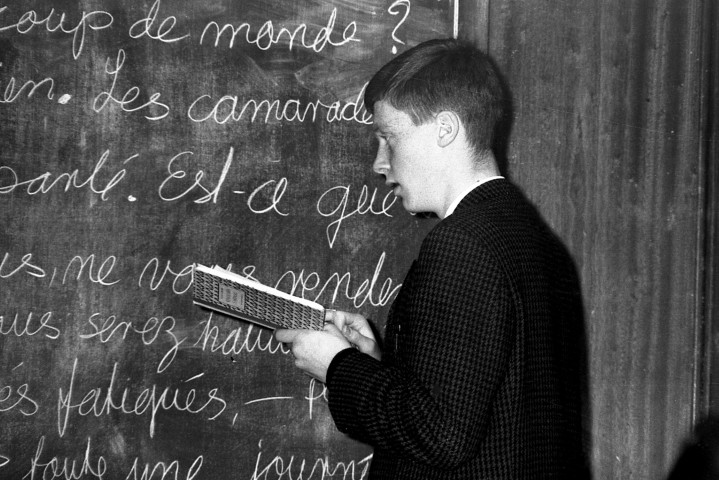 coup de monde ?
ien. Les camarade
santé. Est-ce que
us, ne vous rendez
ous serez
és fatigués, —
toute une journ